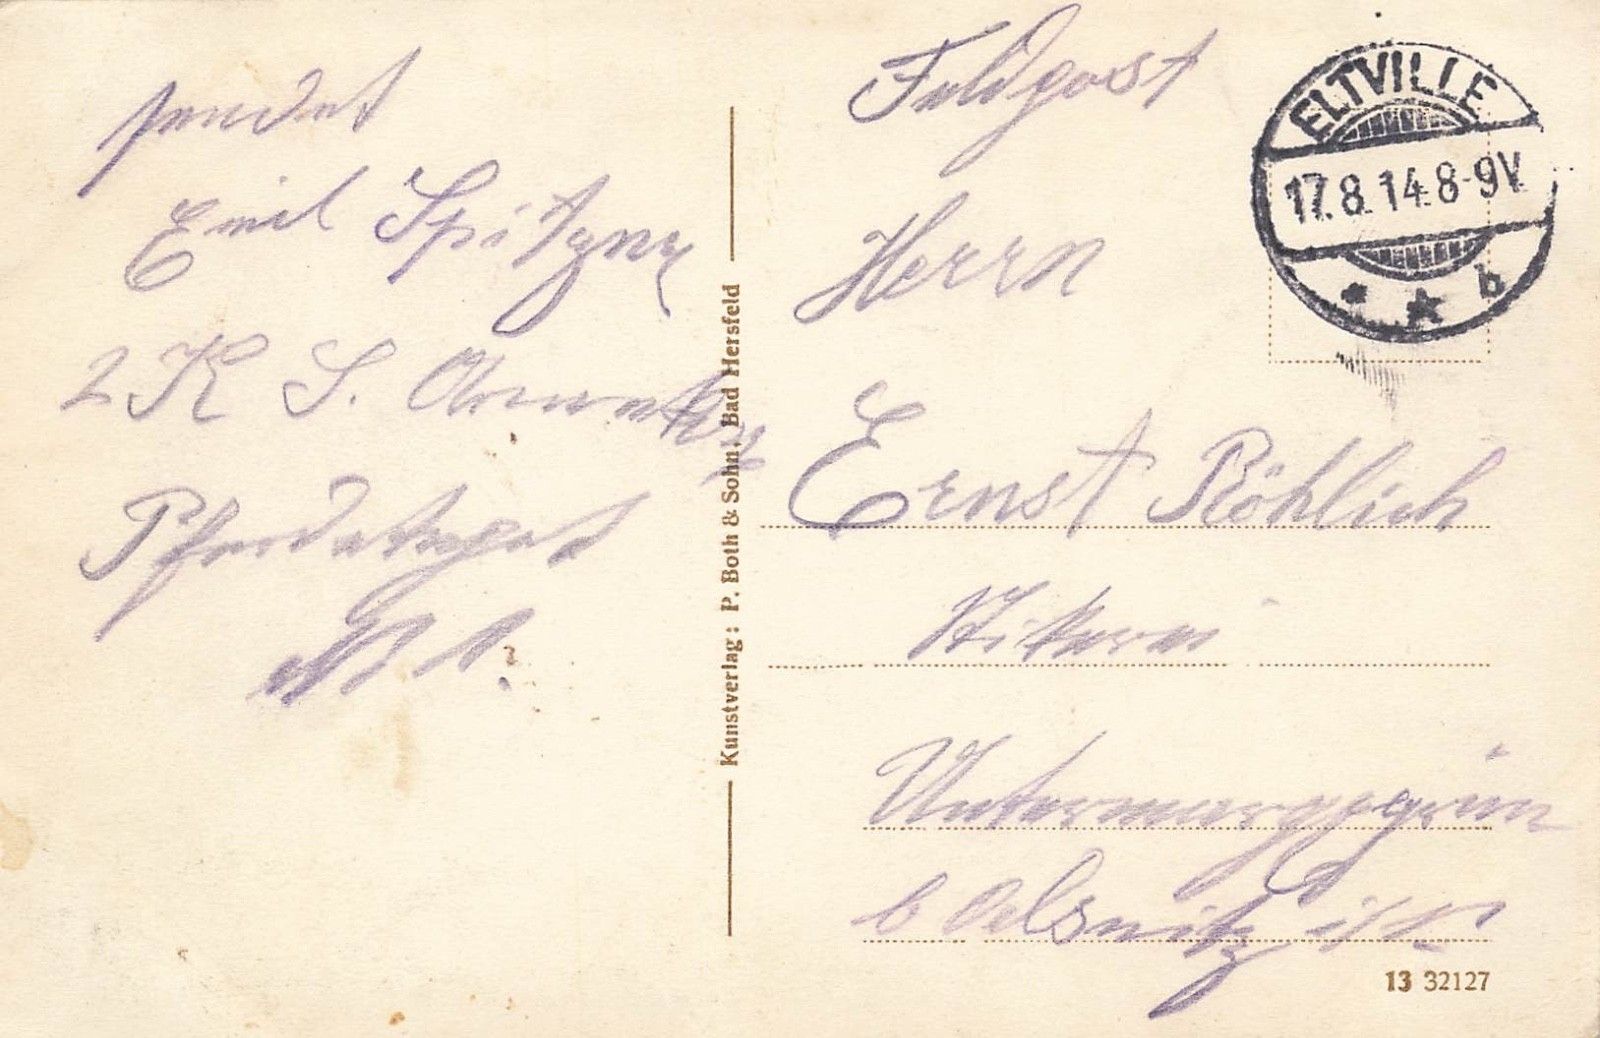 sendet
Emil Spitzner
2 K. S. Armeekorps
Pferdedepot
N 1.
Kunstverlag: P. Both & Sohn, Bad Hersfeld
Feldpost
ELTVILLE
17.8.14.8-9V.
* ★ b
Herrn
Ernst Röhlich
Stikerei
Untermarxgrün
b Oelsnitz i/V.
13 32127